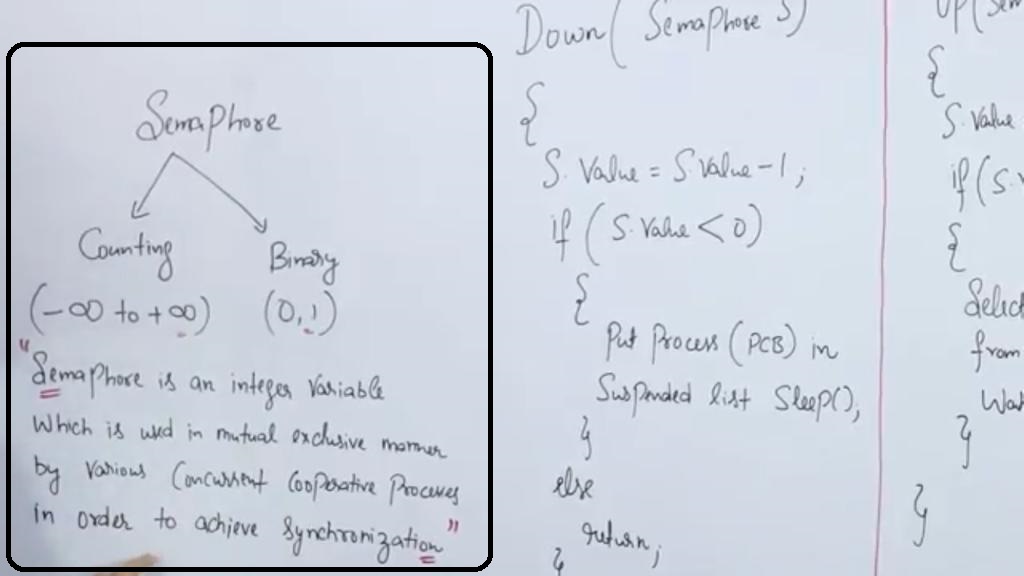 Semaphore
Counting
Binary
(-∞ to +∞)
(0,1)
"Semaphore is an integer variable
Which is used in mutual exclusive manner
by various Concurrent Cooperative Processes
in order to achieve Synchronization"
Down( Semaphore S)
{
S. Value = S. Value - 1;
if ( S. Value < 0)
{
Put Process (PCB) in
Suspended list Sleep();
}
else
return;
}
{
S. Value
if (S.
{
Select
from
}
}